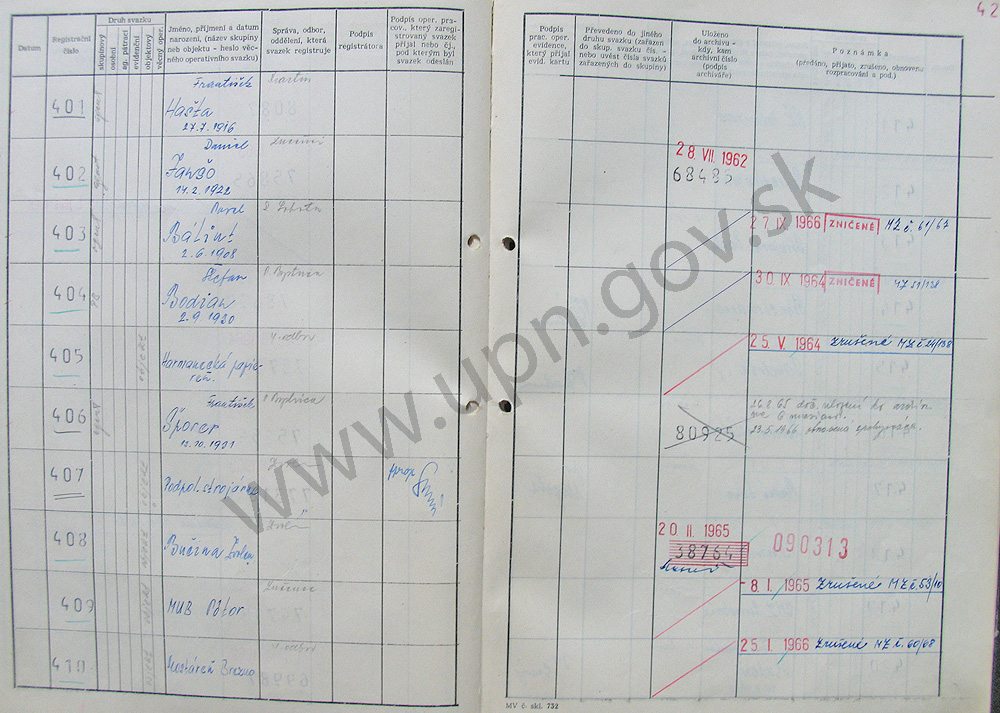 42
Datum
Registrační
číslo
Druh svazku
skupinový
osobní
ag. pátrací
evidenční
objektový
věcný oper.
Jméno, příjmení a datum
narození, (název skupiny
neb objektu - heslo věc-
ného operativního svazku)
Správa, odbor,
oddělení, která
svazek registruje
Podpis
registrátora
Podpis oper. pra-
cov., který zaregi-
strovaný svazek
přijal nebo čj.,
pod kterým byl
svazek odeslán
Podpis
prac. oper.
evidence,
který přijal
evid. kartu
Převedeno do jiného
druhu svazku (zařazen
do skup. svazku čís. -
nebo uvést čísla svazků
zařazených do skupiny)
Uloženo
do archivu -
kdy, kam
archivní číslo
(podpis
archiváře)
Poznámka
(předáno, přijato, zrušeno, obnovenu
rozpracování a pod.)
401
František
Hašta
27.7.1916
Martin
402
Daniel
Jančo
14.2.1922
Lučenec
28. VII. 1962
68485
403
Pavel
Bálint
2.6.1908
R. Sobota
27. IX. 1966 ZNIČENÉ MZ č. 61/67
404
Štefan
Bodian
2.9.1930
P. Bystrica
30. IX. 1964 ZNIČENÉ MZ 51/138
405
Harmanecká papie-
reň
II. odbor
25. V. 1964 Zrušené MZ č. 24/138
406
František
Šporer
12.10.1921
P. Bystrica
80925
407
Podpol. strojárne
408
Bučina Zvolen
Zvolen
20. II. 1965
38764
090313
409
MUB Pôtor
Lučenec
-8. I. 1965 Zrušené MZ č. 53/10
410
Mostáreň Brezno
II. odbor
25. I. 1966 Zrušené MZ č. 60/68
MV č. skl. 732
www.upn.gov.sk